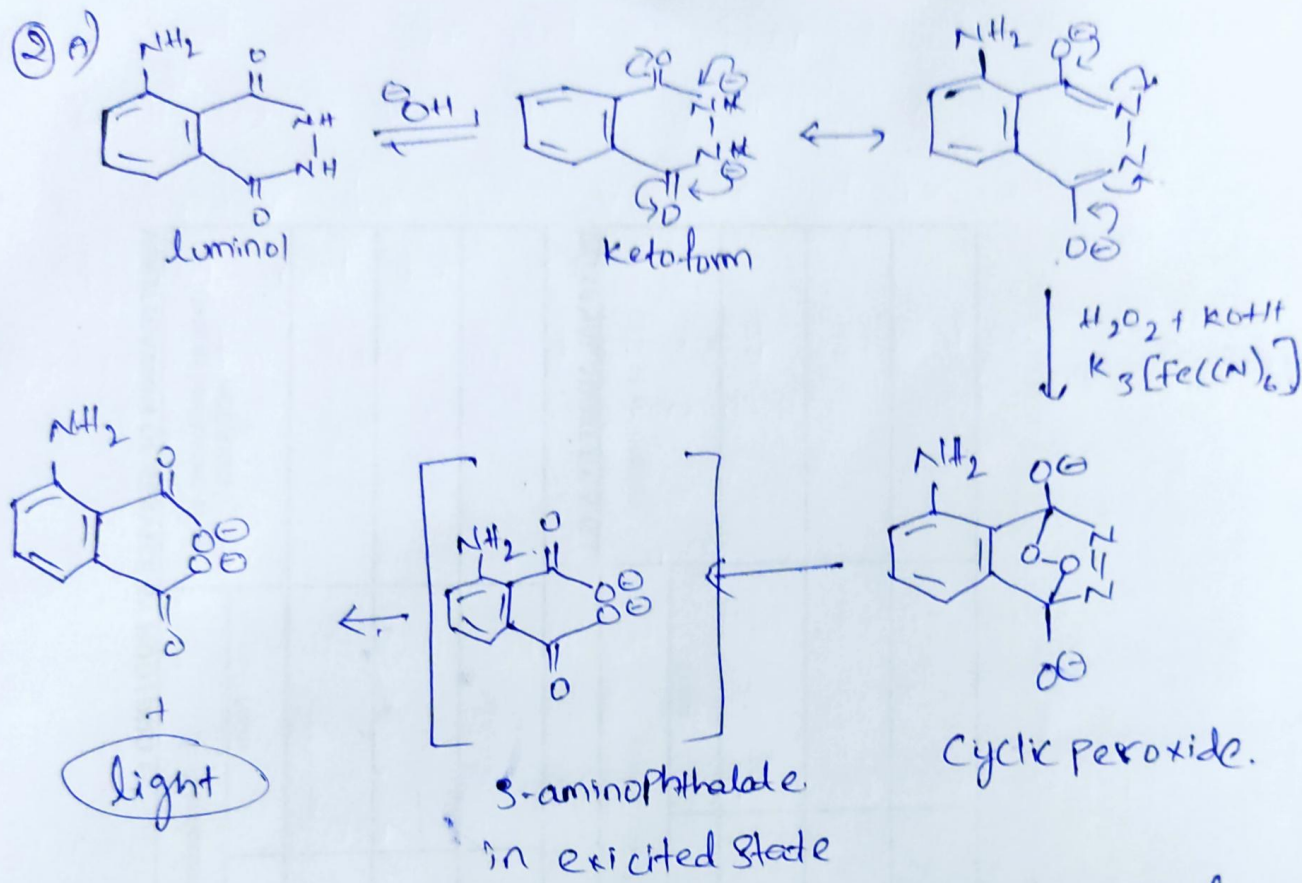 ② A)
NH₂
O
NH
NH
O
luminol
⊖OH
O
⊖
NH
NH
⊖
O
Keto form
NH₂
O⊖
N
N
O⊖
H₂O₂ + KOH
K₃[Fe(CN)₆]
NH₂
O⊖
N
O-O
N
O⊖
Cyclic peroxide.
NH₂
O
O⊖
O⊖
O
3-aminophthalate
in exicited state
NH₂
O
O⊖
O⊖
O
+
light